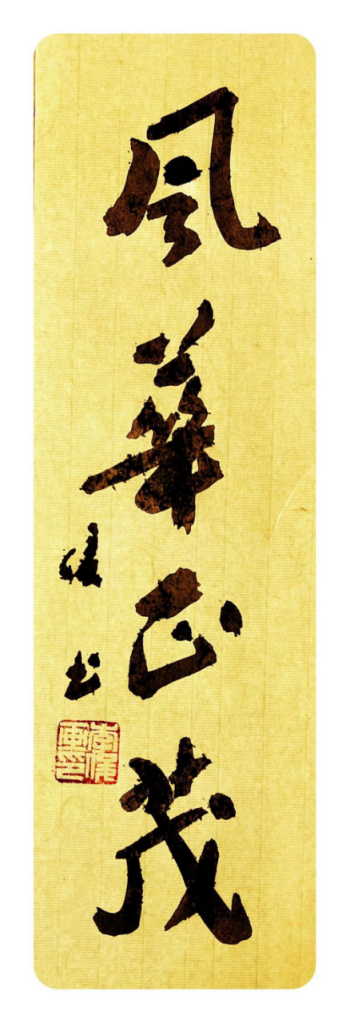 風華正茂
书